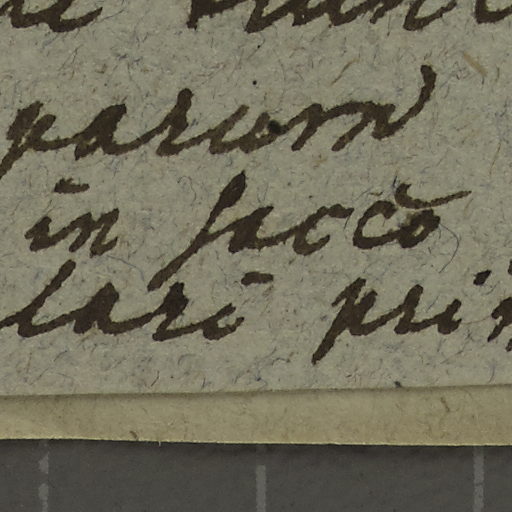 parum
in saccŏ
lari pri